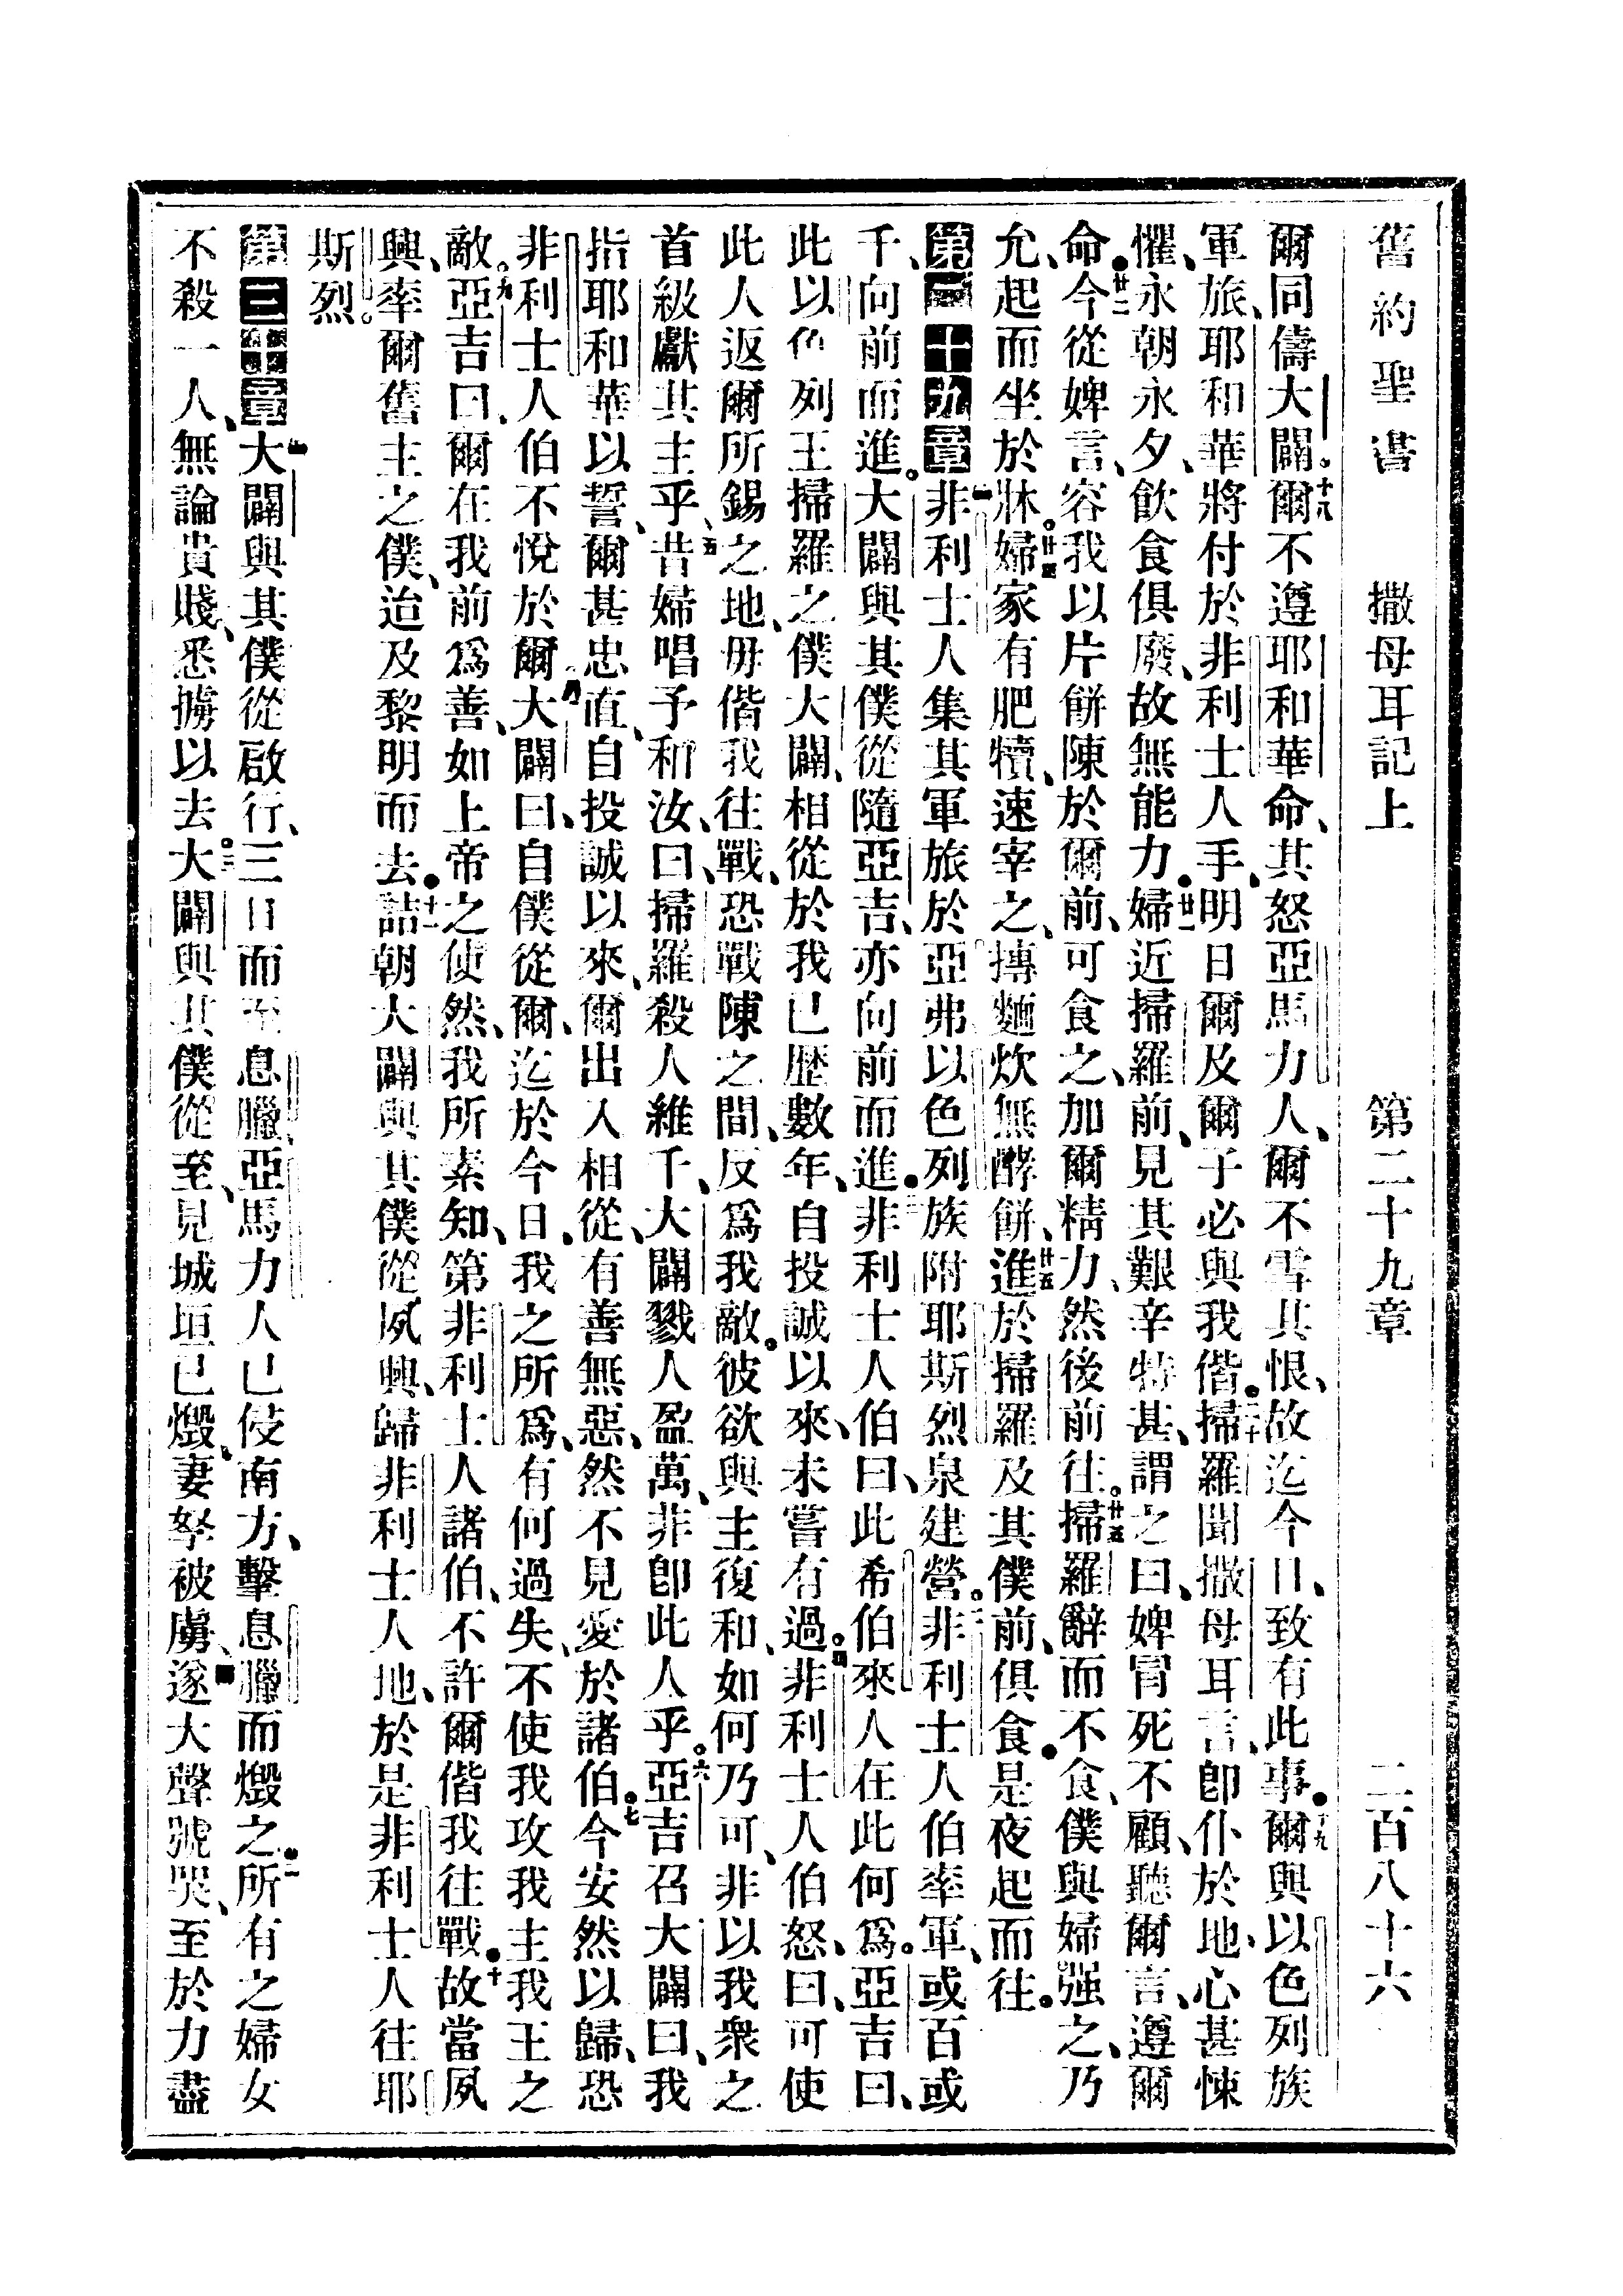 舊約聖書　撒母耳記上　第二十九章　二百八十六
爾同儔大闢。十八爾不遵耶和華命、其怒亞馬力人、爾不雪其恨、故迄今日、致有此事●十九爾與以色列族
軍旅、耶和華將付於非利士人手、明日爾及爾子必與我偕●二十掃羅聞撒母耳言、卽仆於地、心甚悚
懼、永朝永夕、飲食俱廢、故無能力●廿一婦近掃羅前、見其艱辛特甚、謂之曰、婢冒死不顧、聽爾言、遵爾
命●廿二今從婢言、容我以片餅陳於爾前、可食之、加爾精力、然後前往。廿三掃羅辭而不食、僕與婦强之、乃
允、起而坐於牀。廿四婦家有肥犢、速宰之、摶麵炊無酵餅、廿五進於掃羅及其僕前、俱食●是夜起而往。
第二十九章一非利士人集其軍旅於亞弗、以色列族附耶斯烈泉建營。二非利士人伯率軍、或百或
千、向前而進。大闢與其僕從隨亞吉、亦向前而進●三非利士人伯曰、此希伯來人在此何爲。亞吉曰、
此以色列王掃羅之僕大闢、相從於我已歷數年、自投誠以來、未嘗有過。四非利士人伯怒、曰、可使
此人返爾所錫之地、毋偕我往戰、恐戰陳之間、反爲我敵。彼欲與主復和、如何乃可、非以我衆之
首級獻其主乎、五昔婦唱予和汝、曰、掃羅殺人維千、大闢戮人盈萬、非卽此人乎。六亞吉召大闢曰、我
指耶和華以誓、爾甚忠直、自投誠以來、爾出入相從、有善無惡、然不見愛於諸伯。七今安然以歸、恐
非利士人伯不悅於爾。八大闢曰、自僕從爾、迄於今日、我之所爲、有何過失、不使我攻我主我王之
敵。九亞吉曰、爾在我前爲善、如上帝之使然、我所素知、第非利士人諸伯、不許爾偕我往戰●十故當夙
興、率爾舊主之僕、迨及黎明而去●十一詰朝大闢與其僕從、夙興、歸非利士人地、於是非利士人往耶
斯烈。
第三十章一大闢與其僕從啟行、三日而至息臘、亞馬力人已侵南方、擊息臘而燬之●二所有之婦女
不殺一人、無論貴賤、悉擄以去。三大闢與其僕從至、見城垣已燬、妻孥被虜、四遂大聲號哭、至於力盡